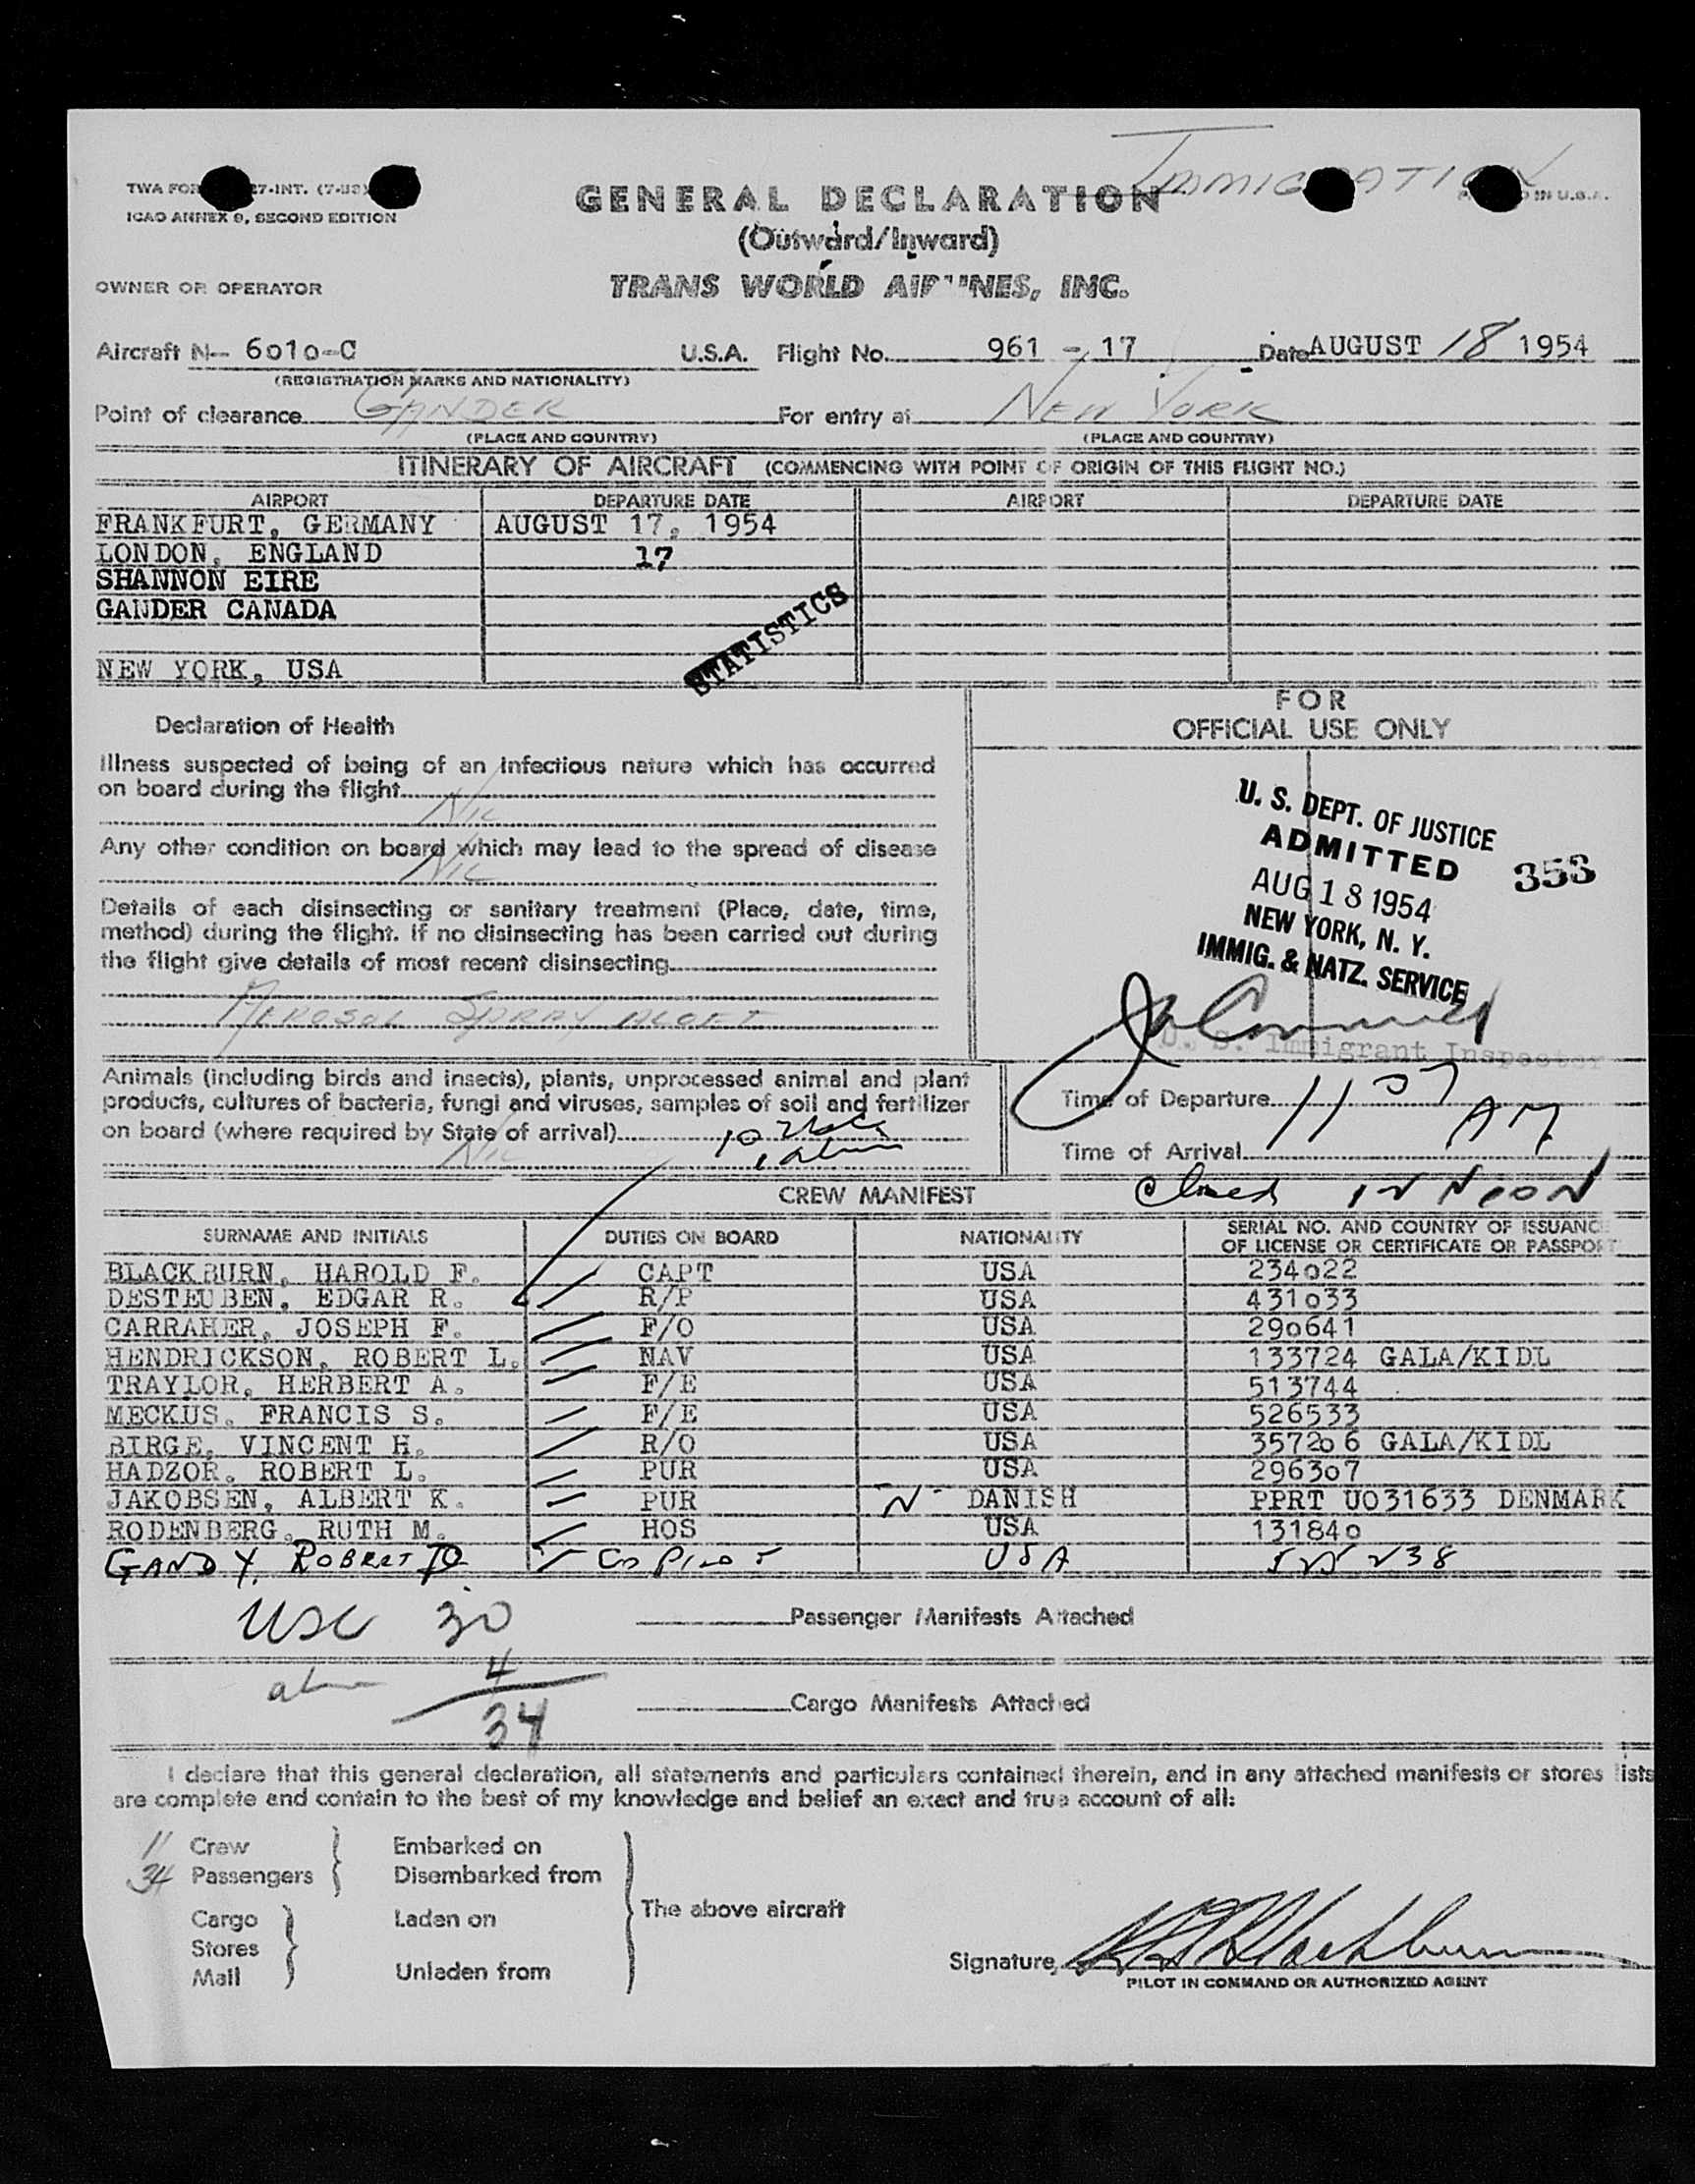 IMMIGRATION
TWA FOR 27-INT. (7-
GENERAL DECLARATION
IN U.S.A.
ICAO ANNEX 9, SECOND EDITION
(Outward/Inward)
OWNER OR OPERATOR
TRANS WORLD AIRLINES, INC.
Aircraft N- 6010-C U.S.A. Flight No. 961 - 17 Date AUGUST 18 1954
(REGISTRATION MARKS AND NATIONALITY)
Point of clearance GANDER For entry at NEW YORK
(PLACE AND COUNTRY) (PLACE AND COUNTRY)
ITINERARY OF AIRCRAFT (COMMENCING WITH POINT OF ORIGIN OF THIS FLIGHT NO.)
AIRPORT DEPARTURE DATE AIRPORT DEPARTURE DATE
FRANKFURT, GERMANY AUGUST 17, 1954
LONDON, ENGLAND 17
SHANNON EIRE
GANDER CANADA
STATISTICS
NEW YORK, USA
Declaration of Health
Illness suspected of being of an infectious nature which has occurred
on board during the flight
NIL
Any other condition on board which may lead to the spread of disease
NIL
Details of each disinsecting or sanitary treatment (Place, date, time,
method) during the flight. If no disinsecting has been carried out during
the flight give details of most recent disinsecting
AEROSOL SPRAY ALOFT
FOR
OFFICIAL USE ONLY
U. S. DEPT. OF JUSTICE
ADMITTED 353
AUG 18 1954
NEW YORK, N. Y.
IMMIG. & NATZ. SERVICE
U. S. Immigrant Inspector
Animals (including birds and insects), plants, unprocessed animal and plant
products, cultures of bacteria, fungi and viruses, samples of soil and fertilizer
on board (where required by State of arrival) 10
NIL 1 alien
Time of Departure 11 07
AM
Time of Arrival
Closed 12 NOON
CREW MANIFEST
SURNAME AND INITIALS DUTIES ON BOARD NATIONALITY SERIAL NO. AND COUNTRY OF ISSUANCE
OF LICENSE OR CERTIFICATE OR PASSPORT
BLACKBURN, HAROLD F. CAPT USA 234022
DESTEUBEN, EDGAR R. R/P USA 431033
CARRAHER, JOSEPH F. F/O USA 290641
HENDRICKSON, ROBERT L. NAV USA 133724 GALA/KIDL
TRAYLOR, HERBERT A. F/E USA 513744
MECKUS, FRANCIS S. F/E USA 526533
BIRGE, VINCENT H. R/O USA 357206 GALA/KIDL
HADZOR, ROBERT L. PUR USA 296307
JAKOBSEN, ALBERT K. PUR "N" DANISH PPRT UO31633 DENMARK
RODENBERG, RUTH M. HOS USA 131840
GANDY, ROBERT D CO PILOT USA 525238
USC 30
Passenger Manifests Attached
4
34
Cargo Manifests Attached
I declare that this general declaration, all statements and particulars contained therein, and in any attached manifests or stores lists
are complete and contain to the best of my knowledge and belief an exact and true account of all:
11 Crew Embarked on
34 Passengers Disembarked from
Cargo Laden on The above aircraft
Stores
Mail Unladen from
Signature HF Blackburn
PILOT IN COMMAND OR AUTHORIZED AGENT